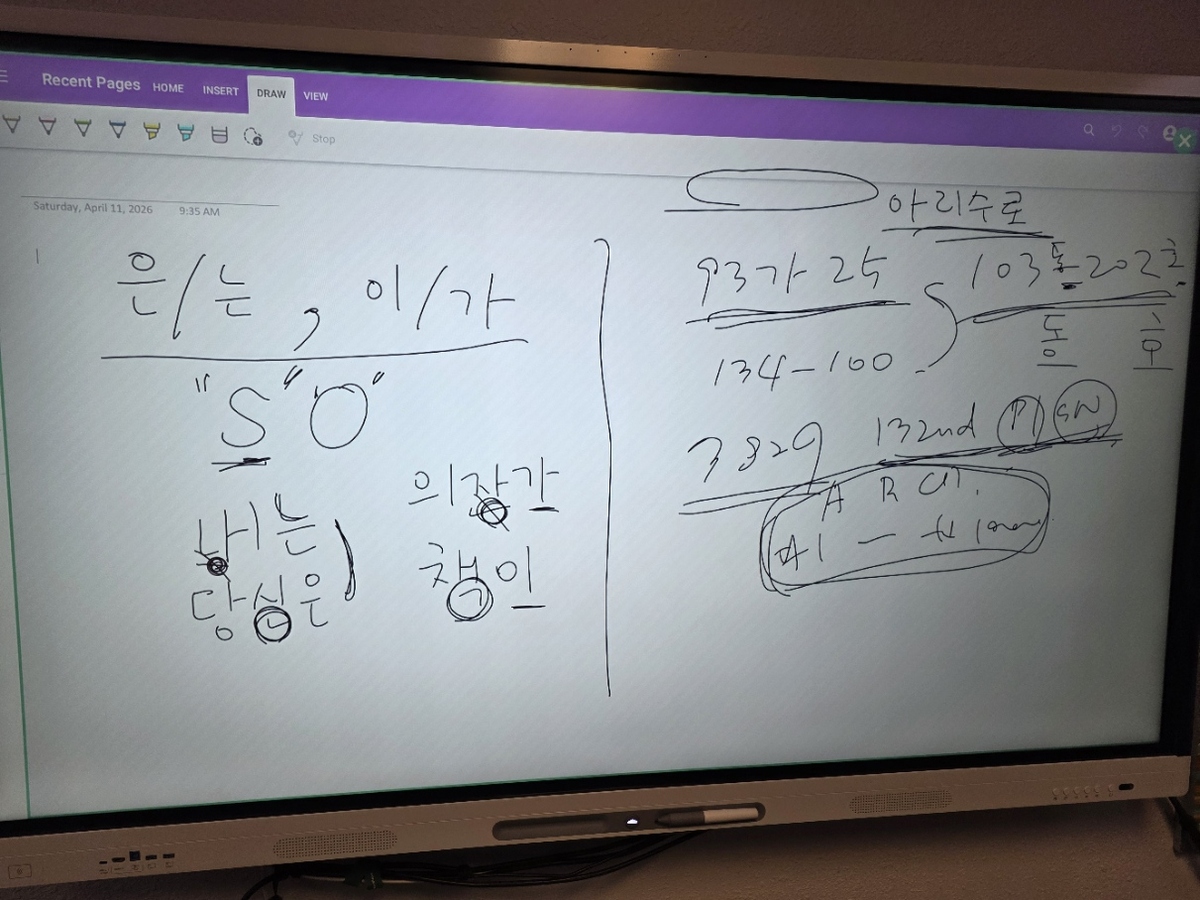 Recent Pages HOME INSERT DRAW VIEW
Stop
Saturday, April 11, 2026 9:35 AM
은/는, 이/가
"S" O"
나는
당신은
의자가
책이
아리수로
93가 25
103동 202호
동 호
134-100
3829 132nd Pl SW
A R
#1 -